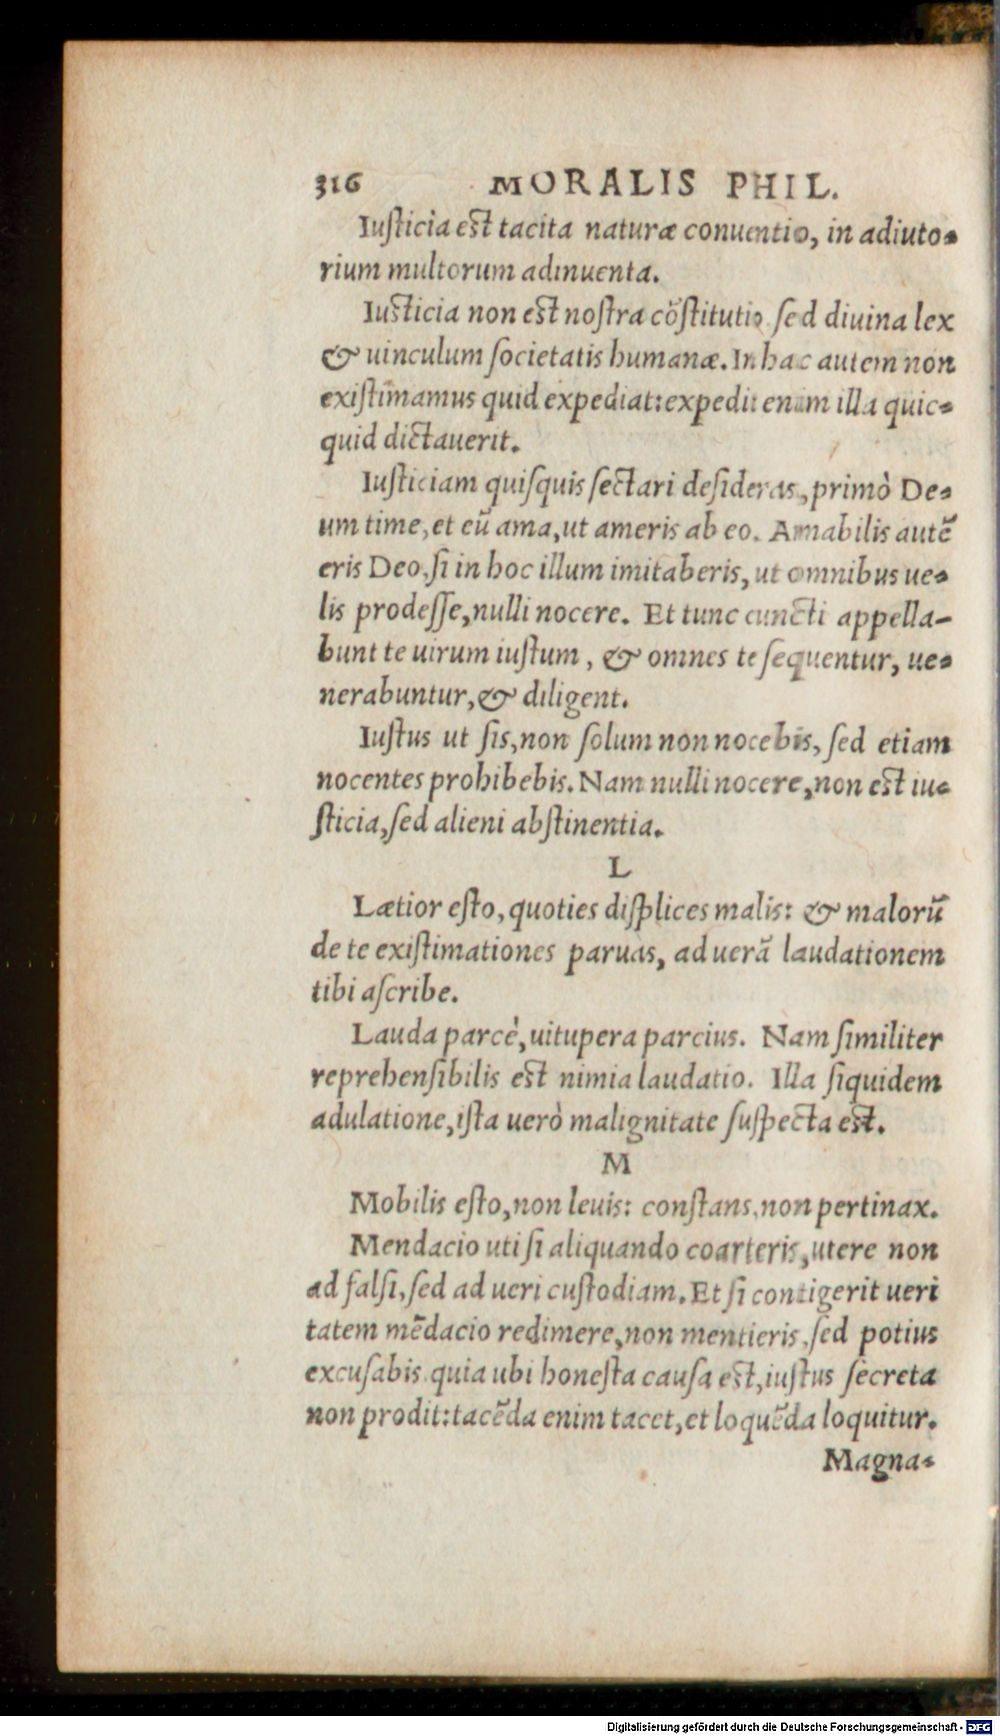 316 MORALIS PHIL.
Iuſticia eſt tacita naturæ conuentio, in adiuto-
rium multorum adinuenta.
Iuſticia non eſt noſtra cõſtitutio, ſed diuina lex
& uinculum ſocietatis humanæ. In hac autem non
exiſtimamus quid expediat: expedit enim illa quic-
quid dictauerit.
Iuſticiam quiſquis ſectari deſideras, primò De-
um time, et eũ ama, ut ameris ab eo. Amabilis autẽ
eris Deo, ſi in hoc illum imitaberis, ut omnibus ue-
lis prodeſſe, nulli nocere. Et tunc cuncti appella-
bunt te uirum iuſtum, & omnes te ſequentur, ue-
nerabuntur, & diligent.
Iuſtus ut ſis, non ſolum non nocebis, ſed etiam
nocentes prohibebis. Nam nulli nocere, non eſt iu-
ſticia, ſed alieni abſtinentia.
L
Lætior eſto, quoties diſplices malis: & malorũ
de te exiſtimationes paruas, ad uerã laudationem
tibi aſcribe.
Lauda parcè, uitupera parcius. Nam ſimiliter
reprehenſibilis eſt nimia laudatio. Illa ſiquidem
adulatione, iſta uerò malignitate ſuſpecta eſt.
M
Mobilis eſto, non leuis: conſtans, non pertinax.
Mendacio uti ſi aliquando coarteris, utere non
ad falſi, ſed ad ueri cuſtodiam. Et ſi contigerit ueri
tatem mẽdacio redimere, non mentieris, ſed potius
excuſabis. quia ubi honeſta cauſa eſt, iuſtus ſecreta
non prodit: tacẽda enim tacet, et loquẽda loquitur.
Magna-
Digitalisierung gefördert durch die Deutsche Forschungsgemeinschaft - DFG